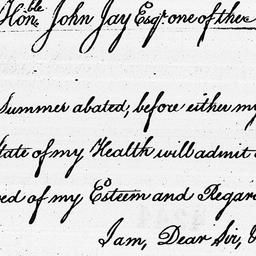 Honble John Jay Esqr one of the
Summer abated, before either my
State of my Health will admit
of my Esteem and Regard
I am, Dear Sir,